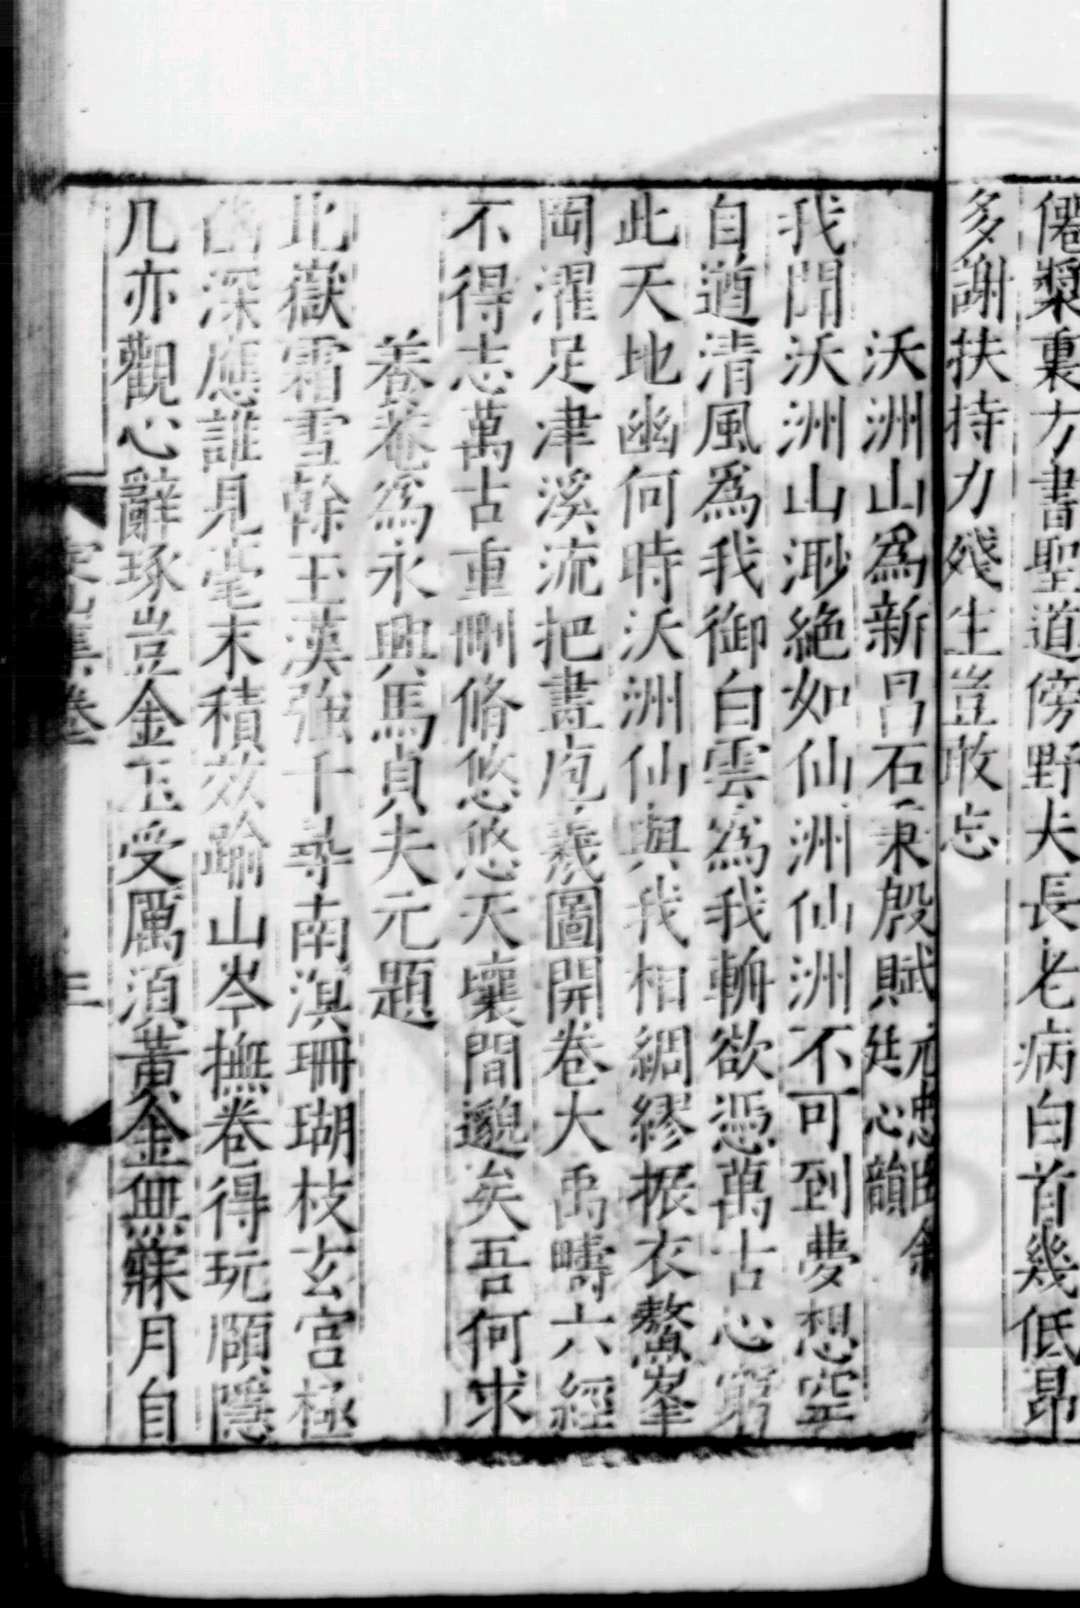 僊槳裏方書聖道傍野夫長老病白首幾低昂
多謝扶持力殘生豈敢忘
沃洲山爲新呂石秉殷賦
我聞沃洲山渺絶如仙洲仙洲不可到夢想空
自遒清風爲我御白雲爲我輈欲憑萬古心窮
此天地幽何時沃洲仙與我相綢繆振衣鰲峯
岡濯足津溪流把晝庖羲圖開卷大禹疇六經
不得志萬古重刪脩悠悠天壤間邈矣吾何求
養菴爲永興馬貞夫元題
北嶽霜雪幹玉漢強千尋南溟珊瑚枝玄宮極
深應誰見毫末積效踰山岑撫卷得玩頤隱
几亦觀心辭琢豈金玉受厲湏黃金無寐月自